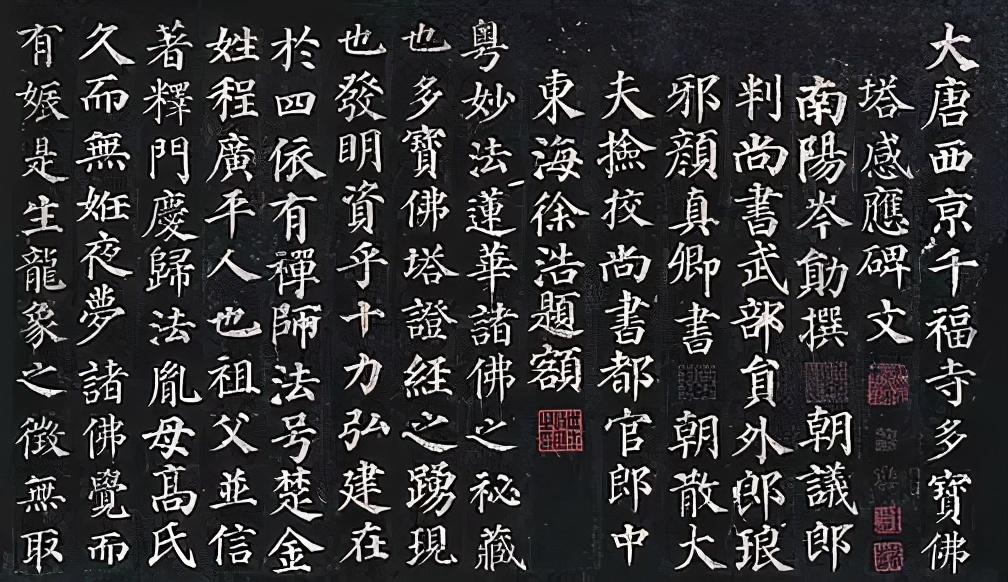 大唐西京千福寺多寶佛
塔感應碑文
南陽岑勛撰 朝議郎
判尚書武部員外郎琅
邪顏真卿書 朝散大
夫撿挍尚書都官郎中
東海徐浩題額
粵妙法蓮華諸佛之祕藏
也多寶佛塔證經之踴現
也發明資乎十力弘建在
於四依有禪師法号楚金
姓程廣平人也祖父並信
著釋門慶歸法胤母高氏
久而無妊夜夢諸佛覺而
有娠是生龍象之徵無取